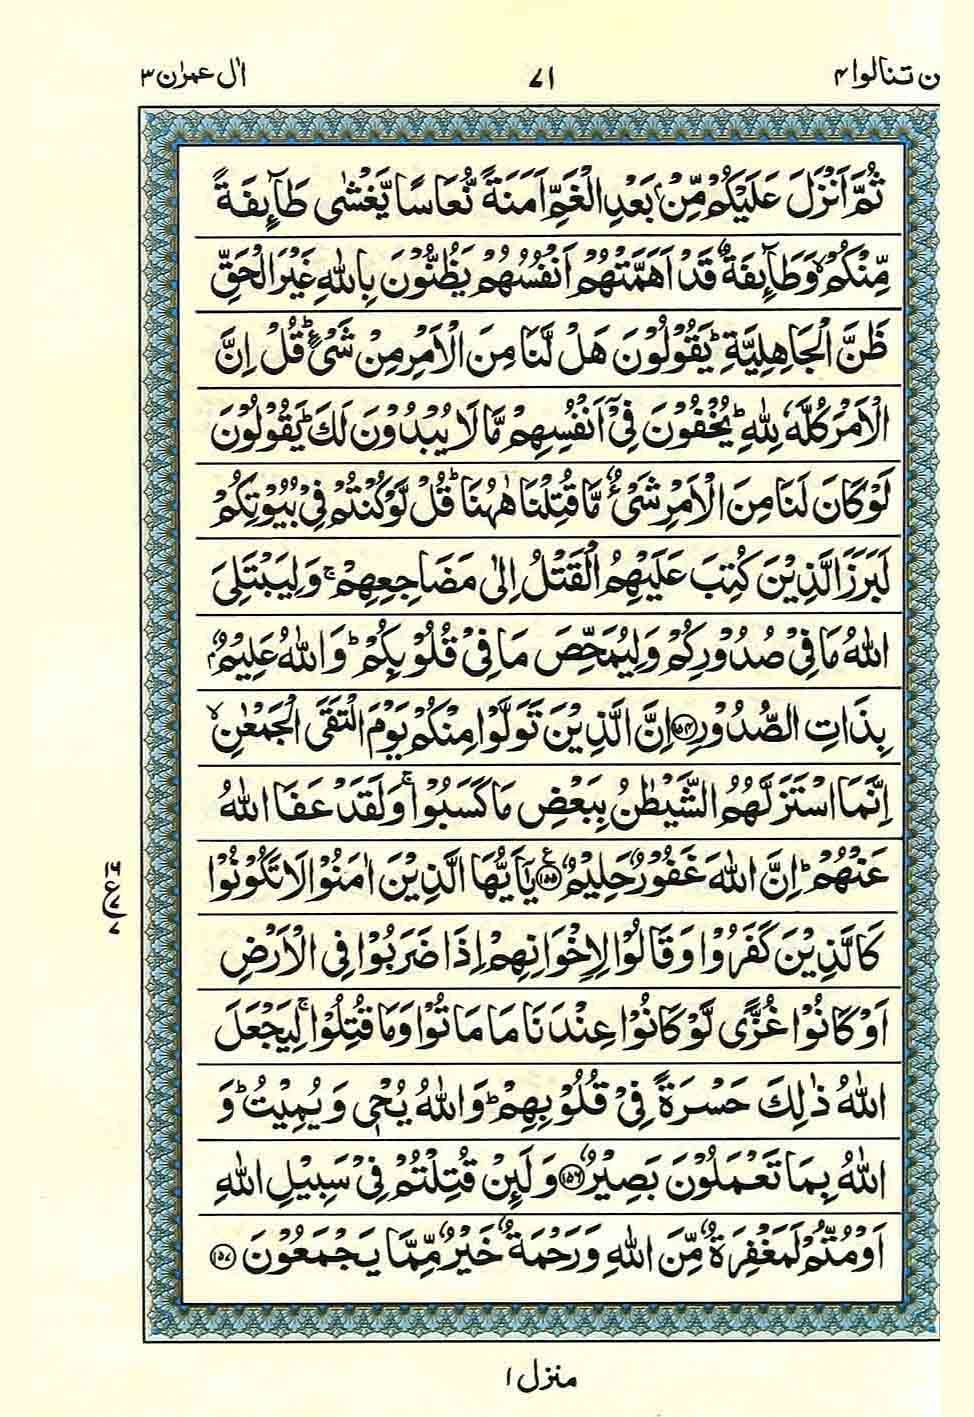 ن تنالوا ۴
۷۱
اٰل عمرٰن ۳
ثُمَّ اَنْزَلَ عَلَيْكُمْ مِّنْۢ بَعْدِ الْغَمِّ اَمَنَةً نُّعَاسًا يَّغْشٰى طَآئِفَةً
مِّنْكُمْ ۙ وَطَآئِفَةٌ قَدْ اَهَمَّتْهُمْ اَنْفُسُهُمْ يَظُنُّوْنَ بِاللّٰهِ غَيْرَ الْحَقِّ
ظَنَّ الْجَاهِلِيَّةِ ؕ يَقُوْلُوْنَ هَلْ لَّنَا مِنَ الْاَمْرِ مِنْ شَىْءٍ ؕ قُلْ اِنَّ
الْاَمْرَ كُلَّهٗ لِلّٰهِ ؕ يُخْفُوْنَ فِىْۤ اَنْفُسِهِمْ مَّا لَا يُبْدُوْنَ لَكَ ؕ يَقُوْلُوْنَ
لَوْ كَانَ لَنَا مِنَ الْاَمْرِ شَىْءٌ مَّا قُتِلْنَا هٰهُنَا ؕ قُلْ لَّوْ كُنْتُمْ فِىْ بُيُوْتِكُمْ
لَبَرَزَ الَّذِيْنَ كُتِبَ عَلَيْهِمُ الْقَتْلُ اِلٰى مَضَاجِعِهِمْ ۚ وَلِيَبْتَلِىَ
اللّٰهُ مَا فِىْ صُدُوْرِكُمْ وَلِيُمَحِّصَ مَا فِىْ قُلُوْبِكُمْ ؕ وَاللّٰهُ عَلِيْمٌۢ
بِذَاتِ الصُّدُوْرِ ۝۱۵۴ اِنَّ الَّذِيْنَ تَوَلَّوْا مِنْكُمْ يَوْمَ الْتَقَى الْجَمْعٰنِ ۙ
اِنَّمَا اسْتَزَلَّهُمُ الشَّيْطٰنُ بِبَعْضِ مَا كَسَبُوْا ۚ وَلَقَدْ عَفَا اللّٰهُ
عَنْهُمْ ؕ اِنَّ اللّٰهَ غَفُوْرٌ حَلِيْمٌ ۝۱۵۵ يٰۤاَيُّهَا الَّذِيْنَ اٰمَنُوْا لَا تَكُوْنُوْا
كَالَّذِيْنَ كَفَرُوْا وَقَالُوْا لِاِخْوَانِهِمْ اِذَا ضَرَبُوْا فِى الْاَرْضِ
اَوْ كَانُوْا غُزًّى لَّوْ كَانُوْا عِنْدَنَا مَا مَاتُوْا وَمَا قُتِلُوْا ۚ لِيَجْعَلَ
اللّٰهُ ذٰلِكَ حَسْرَةً فِىْ قُلُوْبِهِمْ ؕ وَاللّٰهُ يُحْىٖ وَيُمِيْتُ ؕ وَ
اللّٰهُ بِمَا تَعْمَلُوْنَ بَصِيْرٌ ۝۱۵۶ وَلَئِنْ قُتِلْتُمْ فِىْ سَبِيْلِ اللّٰهِ
اَوْ مُتُّمْ لَمَغْفِرَةٌ مِّنَ اللّٰهِ وَرَحْمَةٌ خَيْرٌ مِّمَّا يَجْمَعُوْنَ ۝۱۵۷
منزل ۱